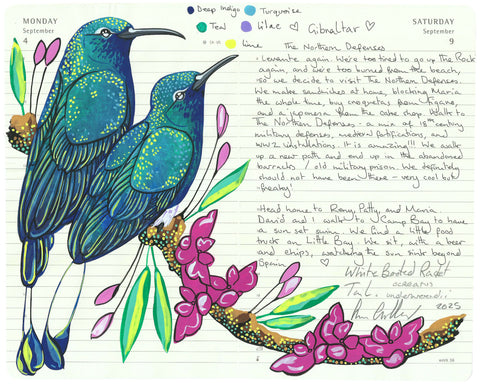 MONDAY
September
4
Deep Indigo
Turquoise
Teal
Lilac
Lime
♡ Gibraltar ♡
SATURDAY
September
9
The Northern Defenses
- Levante again. We're too tired to go up the Rock
again, and we're too burned from the beach,
so we decide to visit The Northern Defenses.
We make sandwiches at home, blocking Maria
the whole time, buy croquetas from
and a japonesa from the cake shop. Walk to
The Northern Defenses - a mix of 18th century
military defenses, medieval fortifications, and
WW2 installations. It is amazing!!! We walk
up a near path and end up in the abandoned
barracks / old military prison. We definitely
should not have been there - very cool but
freaky!
- Head home to Remy, Patty, and Maria.
David and I walk to Camp Bay to have
a sun set swim. We find a little food
truck on Little Bay. We sit, with a beer
and chips, watching the sun sink beyond
Spain ♡
White Booted Racket
Tail.
underwood
2025
week 36